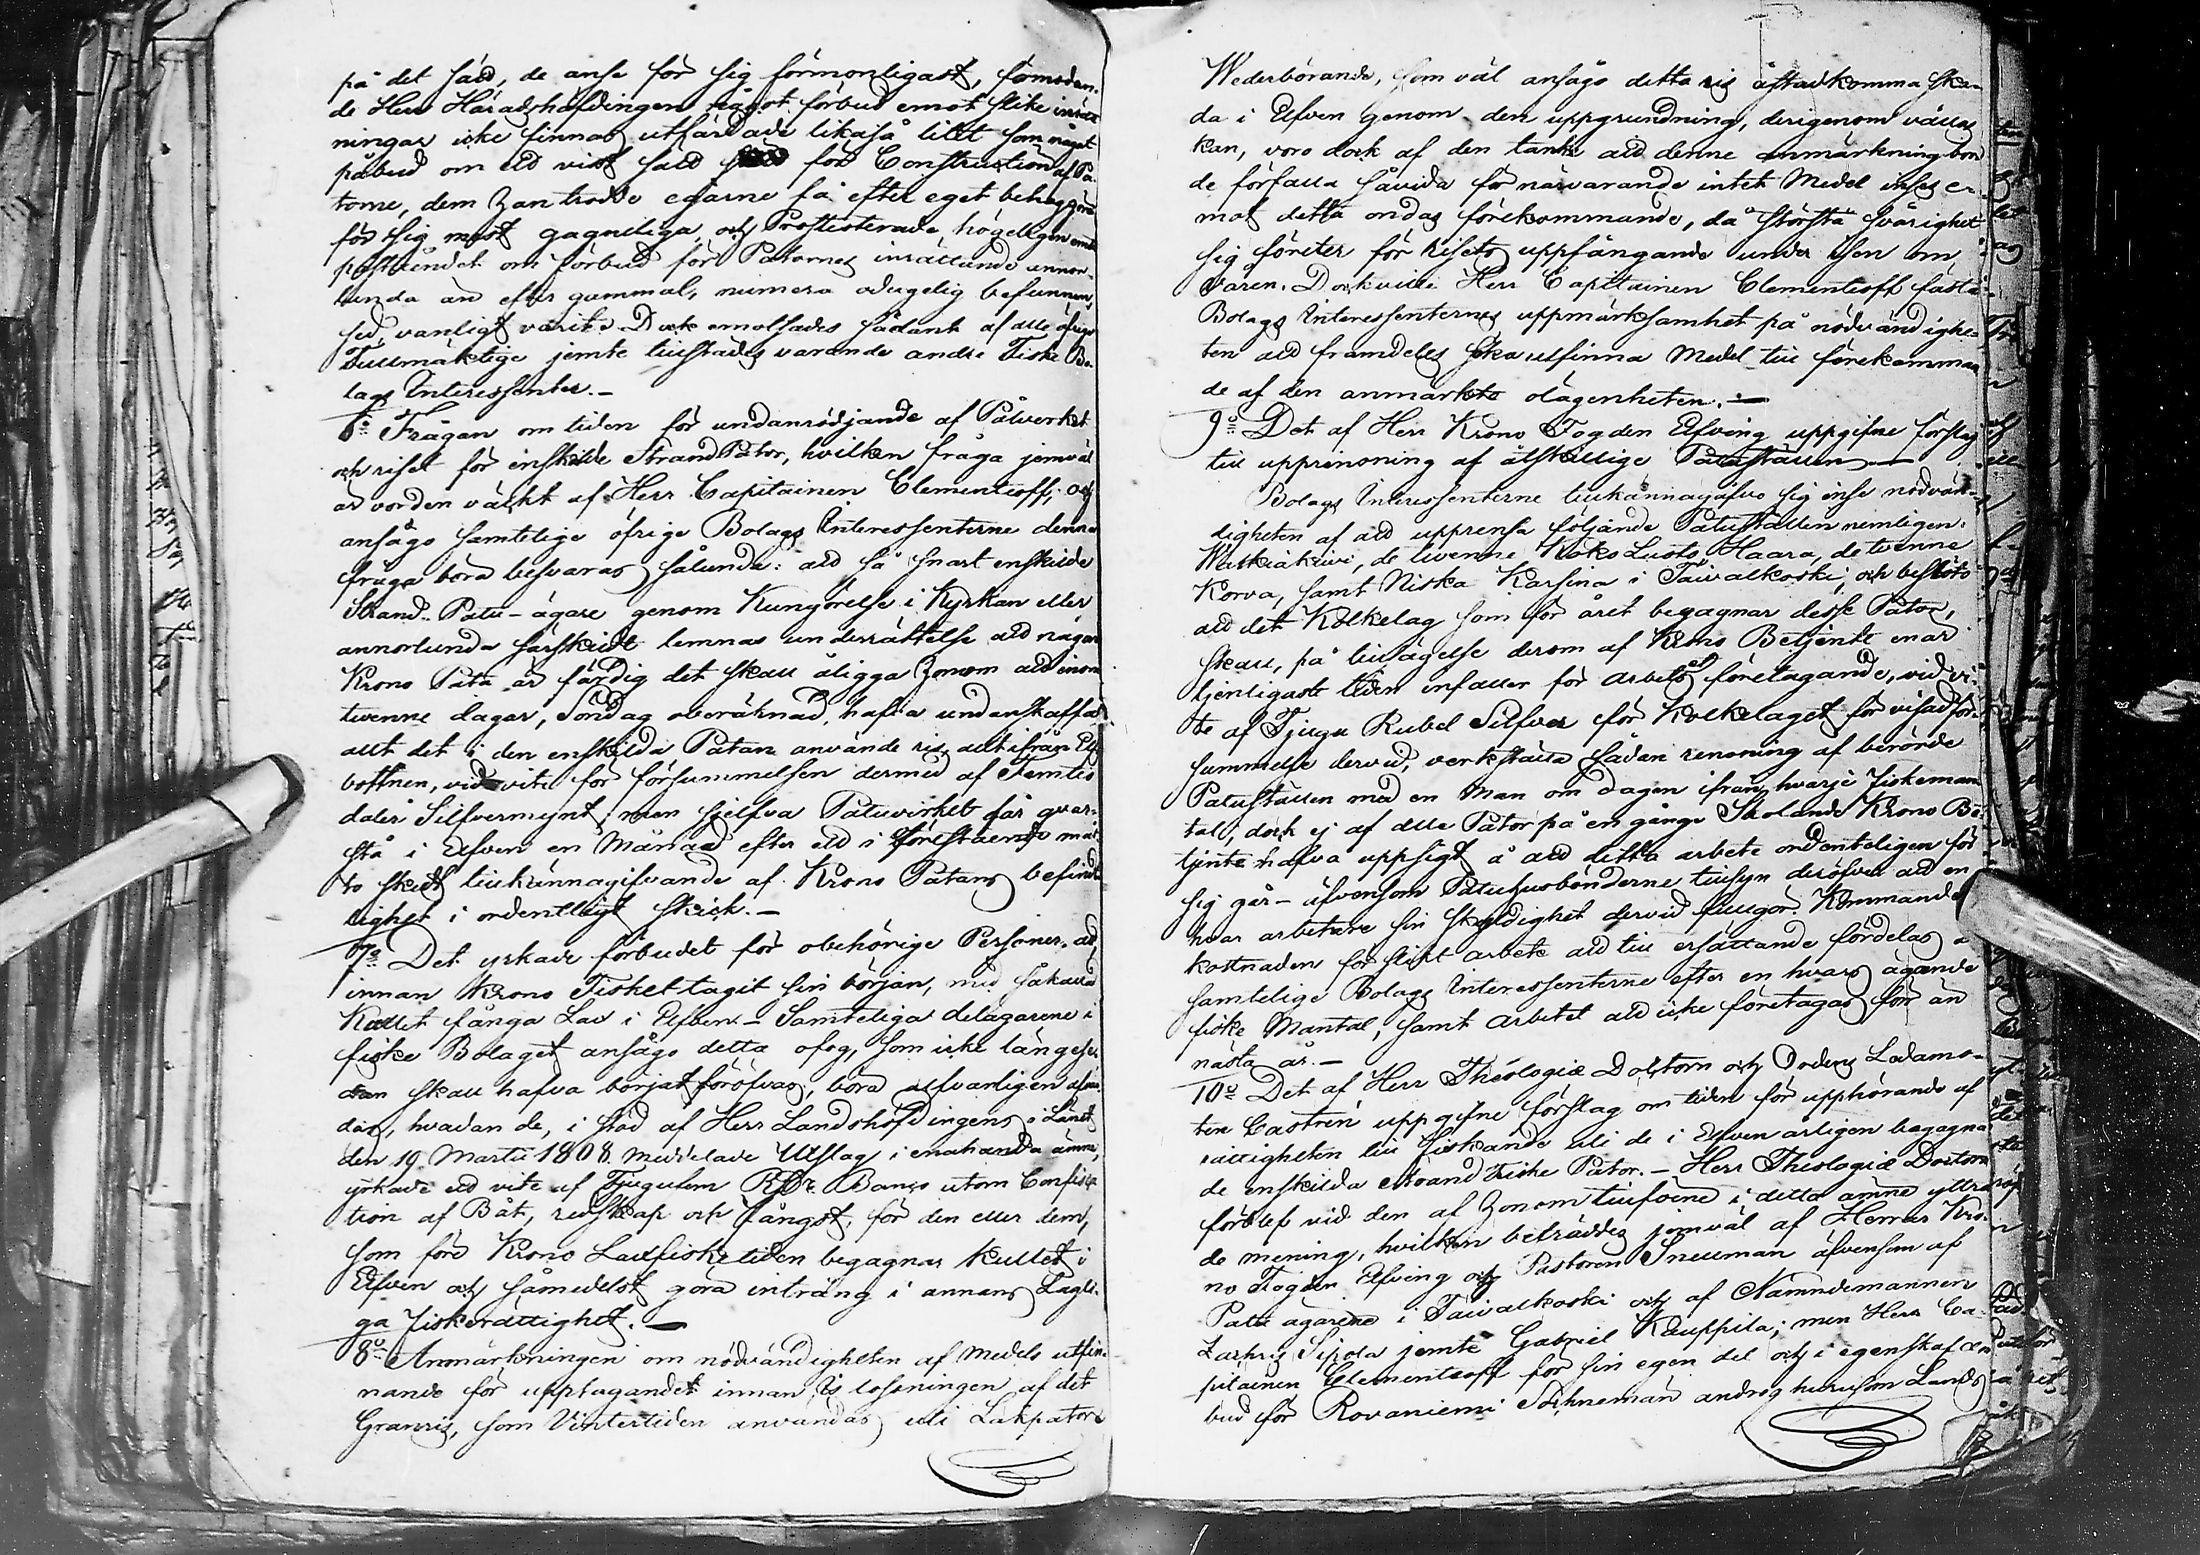 på det sätt, de anse för sig förmonligast, förmedan-
de Herr Häradshöfdingen något förbud emot slike inrätt
ningar icke finnas utfärdade likaså litet som något
påbud om ett visst sätt för Construction af Pa-
torne, dem han trodde egarne få efter eget behag göra
för sig mest gagneliga, och Protesterade högeligen emot
påståendet om förbud för Patornes inrättande annor-
lunda än efter gammal, numera odugelig befunnen
sed, vanligt varit. Dock emotsades sådant af alle öfrige
Fullmäktige jemte tillstädes varande andre Fiske Bo-
lags Interessenter. -
6:o Frågan om tiden för undanrödjande af Pålverket
och riset för enskilde Strand Pator, hvilken fråga jemväl
är vorden väckt af Herr Capitainen Clementeoff; och
ansågo samtelige öfrige Bolags Interessenterne denna
fråga böra besvaras sålunda: att så snart enskilde
Strand-Patu-ägare genom Kungörelse i Kyrkan eller
annorlunda särskildt lemnas underrättelse att någon
Krono Pata är färdig det skall åligga honom att inom
tvenne dagar, Söndag oberäknad, hafva undanskaffat
allt det i den enskilda Patan använde ris, allt ifrån Elf
bottnen, vid vite för försummelsen dermed af Femtio
daler Silfvermynt; men sjelfva Patuvirket får qvar-
stå i Elfven en Månad efter ett i föreskrifne mat-
to skedt tillkännagifvande af Krono Patans befint-
lighet i ordentligt skick. -
7:o Det yrkade förbudet för obehörige Personer, att
innan Krono Fisket tagit sin början, med så kallad
Kullet fånga Lax i Elfven. - Samteliga delägarene i
fiske Bolaget ansågo detta ofog, som icke längese-
dan skall hafva börjat föröfvas, böra alfvarligen afvän-
das, hvadan de, i stöd af Herr Landshöfdingens i Länet
den 19 Martii 1808 meddelade Utslag i enahanda ämne,
yrkade ett vite af Tjugufem R:dr Banco utom Confisca
tion af Båt, redskap och fångst, för den eller dem,
som före Krono Laxfisketiden begagnar Kullet i
Elfven och såmedelst göra intrång i annans Lagli-
ga fiskerättighet. -
8:o Anmärkningen om nödvändigheten af medels utfin-
nande för upptagandet innan Is lossningen af det
Granris, som Vintertiden användas uti Lakpator
Wederbörande, som väl ansågo detta ris åstadkomma ska-
da i Elfven genom den uppgrundning, derigenom vållas
kan, voro dock af den tanke att denne anmärkning bor
de förfalla såvida för närvarande intet Medel inses e-
mot detta ondas förekommande, då största svårighet
sig företer för risets uppfångande under Isen om
våren. Dock ville Herr Capitainen Clementeoff fästa
Bolags Interessenternes uppmärksamhet på nödvändighe-
ten att framdeles söka utfinna Medel till förekomman
de af den anmärkte olägenheten. -
9:o Det af Herr Krono Fogden Elfving uppgifne förslag
till upprinsning af åtskillige Patuställen -
Bolags Interessenterne tillkännagåfvo sig inse nödvän-
digheten af att upprensa följande Patuställen nemligen:
Waskiakivi, de tvenne Koks Lusto, Haara, de tvenne
Korva, samt Niska Karsina i Taivalkoski, och beslöto
att det Kolkelag som för året begagnar desse Pator,
skall, på tillsägelse derom af Krono Betjente enär
tjenligaste tiden infaller för arbetet företagande, vid vi-
te af Tjugu Rubel Silfver för Kolkelaget för visad för-
summelse dervid, verkställa sådan rensning af berörde
Patuställen med en Man om dagen ifrån hvarje fiskeman
tal, dock ej af alla Pator på en gång. Skolande Krono Be-
tjente hafva uppsigt å att detta arbete ordenteligen för
sig går - äfvensom Patuhusbönderne tillsyn deröfver att en
hvar arbetare sin skyldighet dervid fullgör. Kommande
kostnaden för slikt arbete att till ersättande fördelas a
samtelige Bolags Interessenterne efter en hvars ägande
fiske Mantal, samt arbetet att icke företagas förr än
nästa år. -
10:o Det af Herr Theologiæ Doctorn och Ordens Ledamo-
ten Castrén uppgifne förslag om tiden för upphörande af
rättigheten till fiskande uti de i Elfven årligen begagna
de enskilda Strand Fiske Pator. - Herr Theologiæ Doctorn
förblef vid den af honom tillförene i detta ämne yttra
de mening, hvilken beträddes jemväl af Herrar Kro-
no Fogden Elfving och Pastoren Snellman äfvensom af
Patu ägarene i Taivalkoski och af Nämndemannen
Zachris Sipola jemte Gabriel Kauppila; men Herr Ca-
pitainen Clementeoff för sin egen del och i egenskap af om
bud för Rovaniemi Sockneman androg hurusom Lands